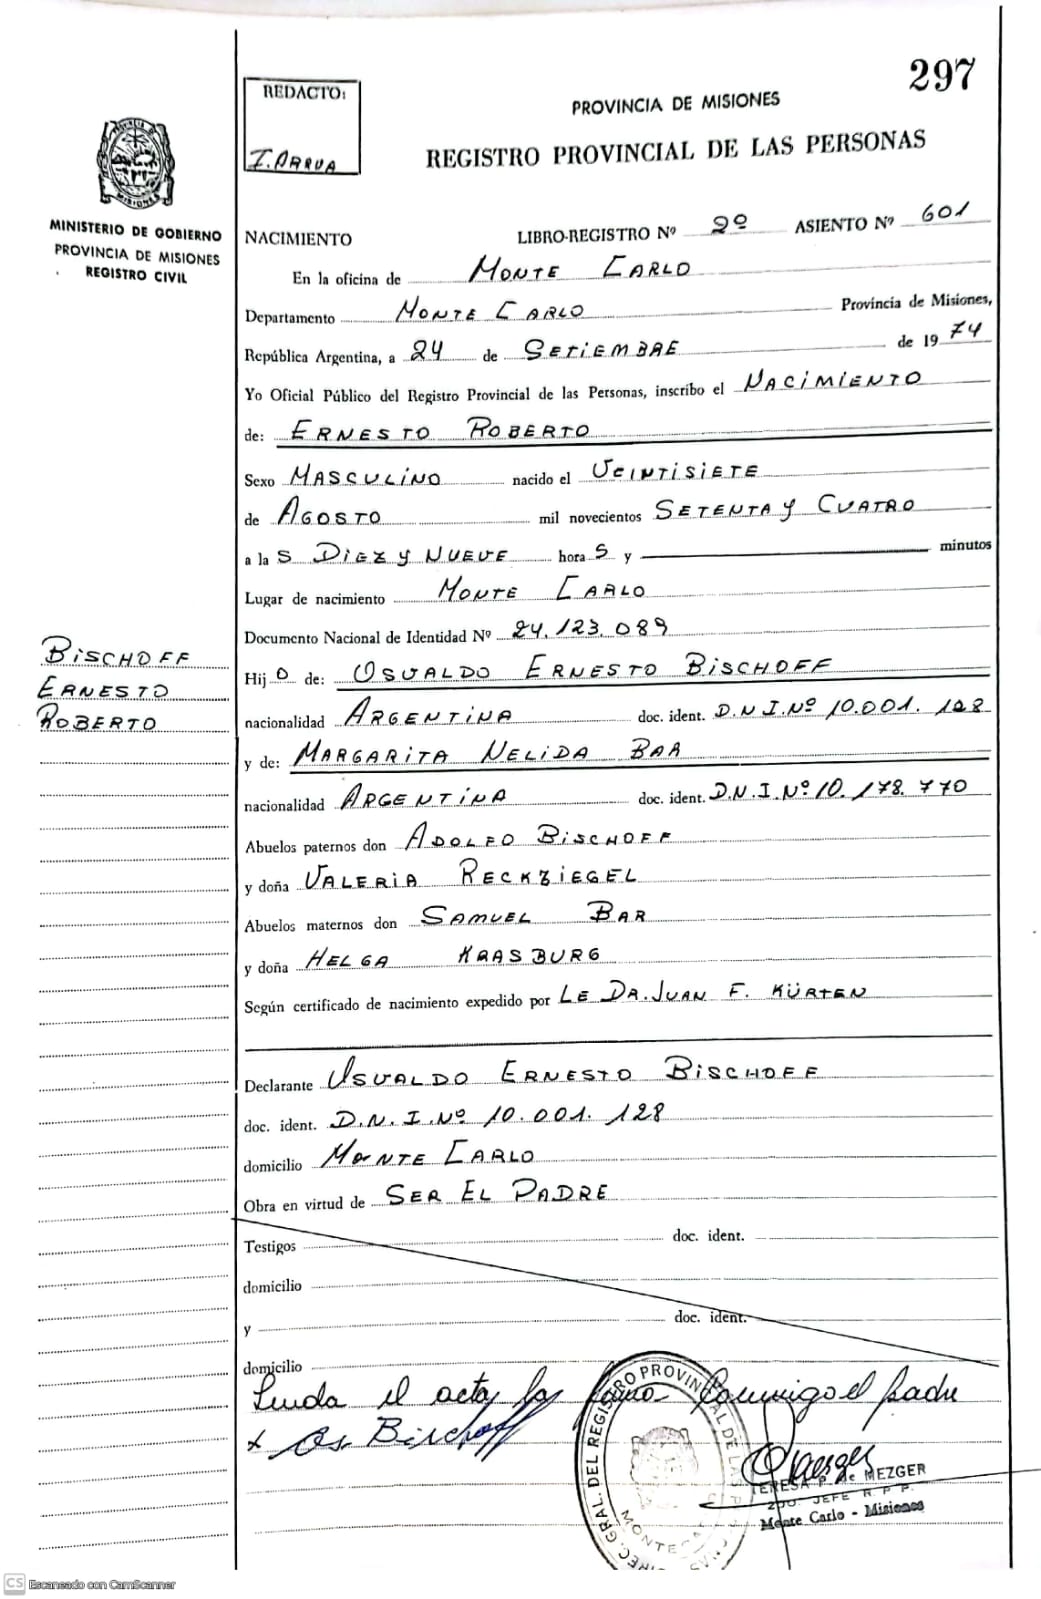 297
REDACTO:
I. ARRUA
PROVINCIA DE MISIONES
REGISTRO PROVINCIAL DE LAS PERSONAS
MINISTERIO DE GOBIERNO
PROVINCIA DE MISIONES
REGISTRO CIVIL
NACIMIENTO LIBRO-REGISTRO Nº 2º ASIENTO Nº 601
En la oficina de MONTE CARLO
Departamento MONTE CARLO Provincia de Misiones,
República Argentina, a 24 de SETIEMBRE de 1974
Yo Oficial Público del Registro Provincial de las Personas, inscribo el NACIMIENTO
de: ERNESTO ROBERTO
Sexo MASCULINO nacido el VEINTISIETE
de AGOSTO mil novecientos SETENTA Y CUATRO
a la S DIEZ Y NUEVE hora S y minutos
Lugar de nacimiento MONTE CARLO
Documento Nacional de Identidad Nº 24.123.089
BISCHOFF
ERNESTO
ROBERTO
Hij O de: OSVALDO ERNESTO BISCHOFF
nacionalidad ARGENTINA doc. ident. D.N.I.Nº 10.001.128
y de: MARGARITA NELIDA BAR
nacionalidad ARGENTINA doc. ident. D.N.I.Nº 10.178.770
Abuelos paternos don ADOLFO BISCHOFF
y doña VALERIA RECKZIEGEL
Abuelos maternos don SAMUEL BAR
y doña HELGA KRASBURG
Según certificado de nacimiento expedido por LE DR. JUAN F. KÜRTEN
Declarante OSVALDO ERNESTO BISCHOFF
doc. ident. D.N.I.Nº 10.001.128
domicilio MONTE CARLO
Obra en virtud de SER EL PADRE
Testigos doc. ident.
domicilio
y doc. ident.
domicilio
Leida el acta la firma conmigo el padre
x Os Bischoff
DIREC. GRAL. DEL REGISTRO PROVINCIAL DE LAS
MONTECARLO
TERESA P. de MEZGER
2DO. JEFE R. P. P.
Monte Carlo - Misiones
CS Escaneado con CamScanner